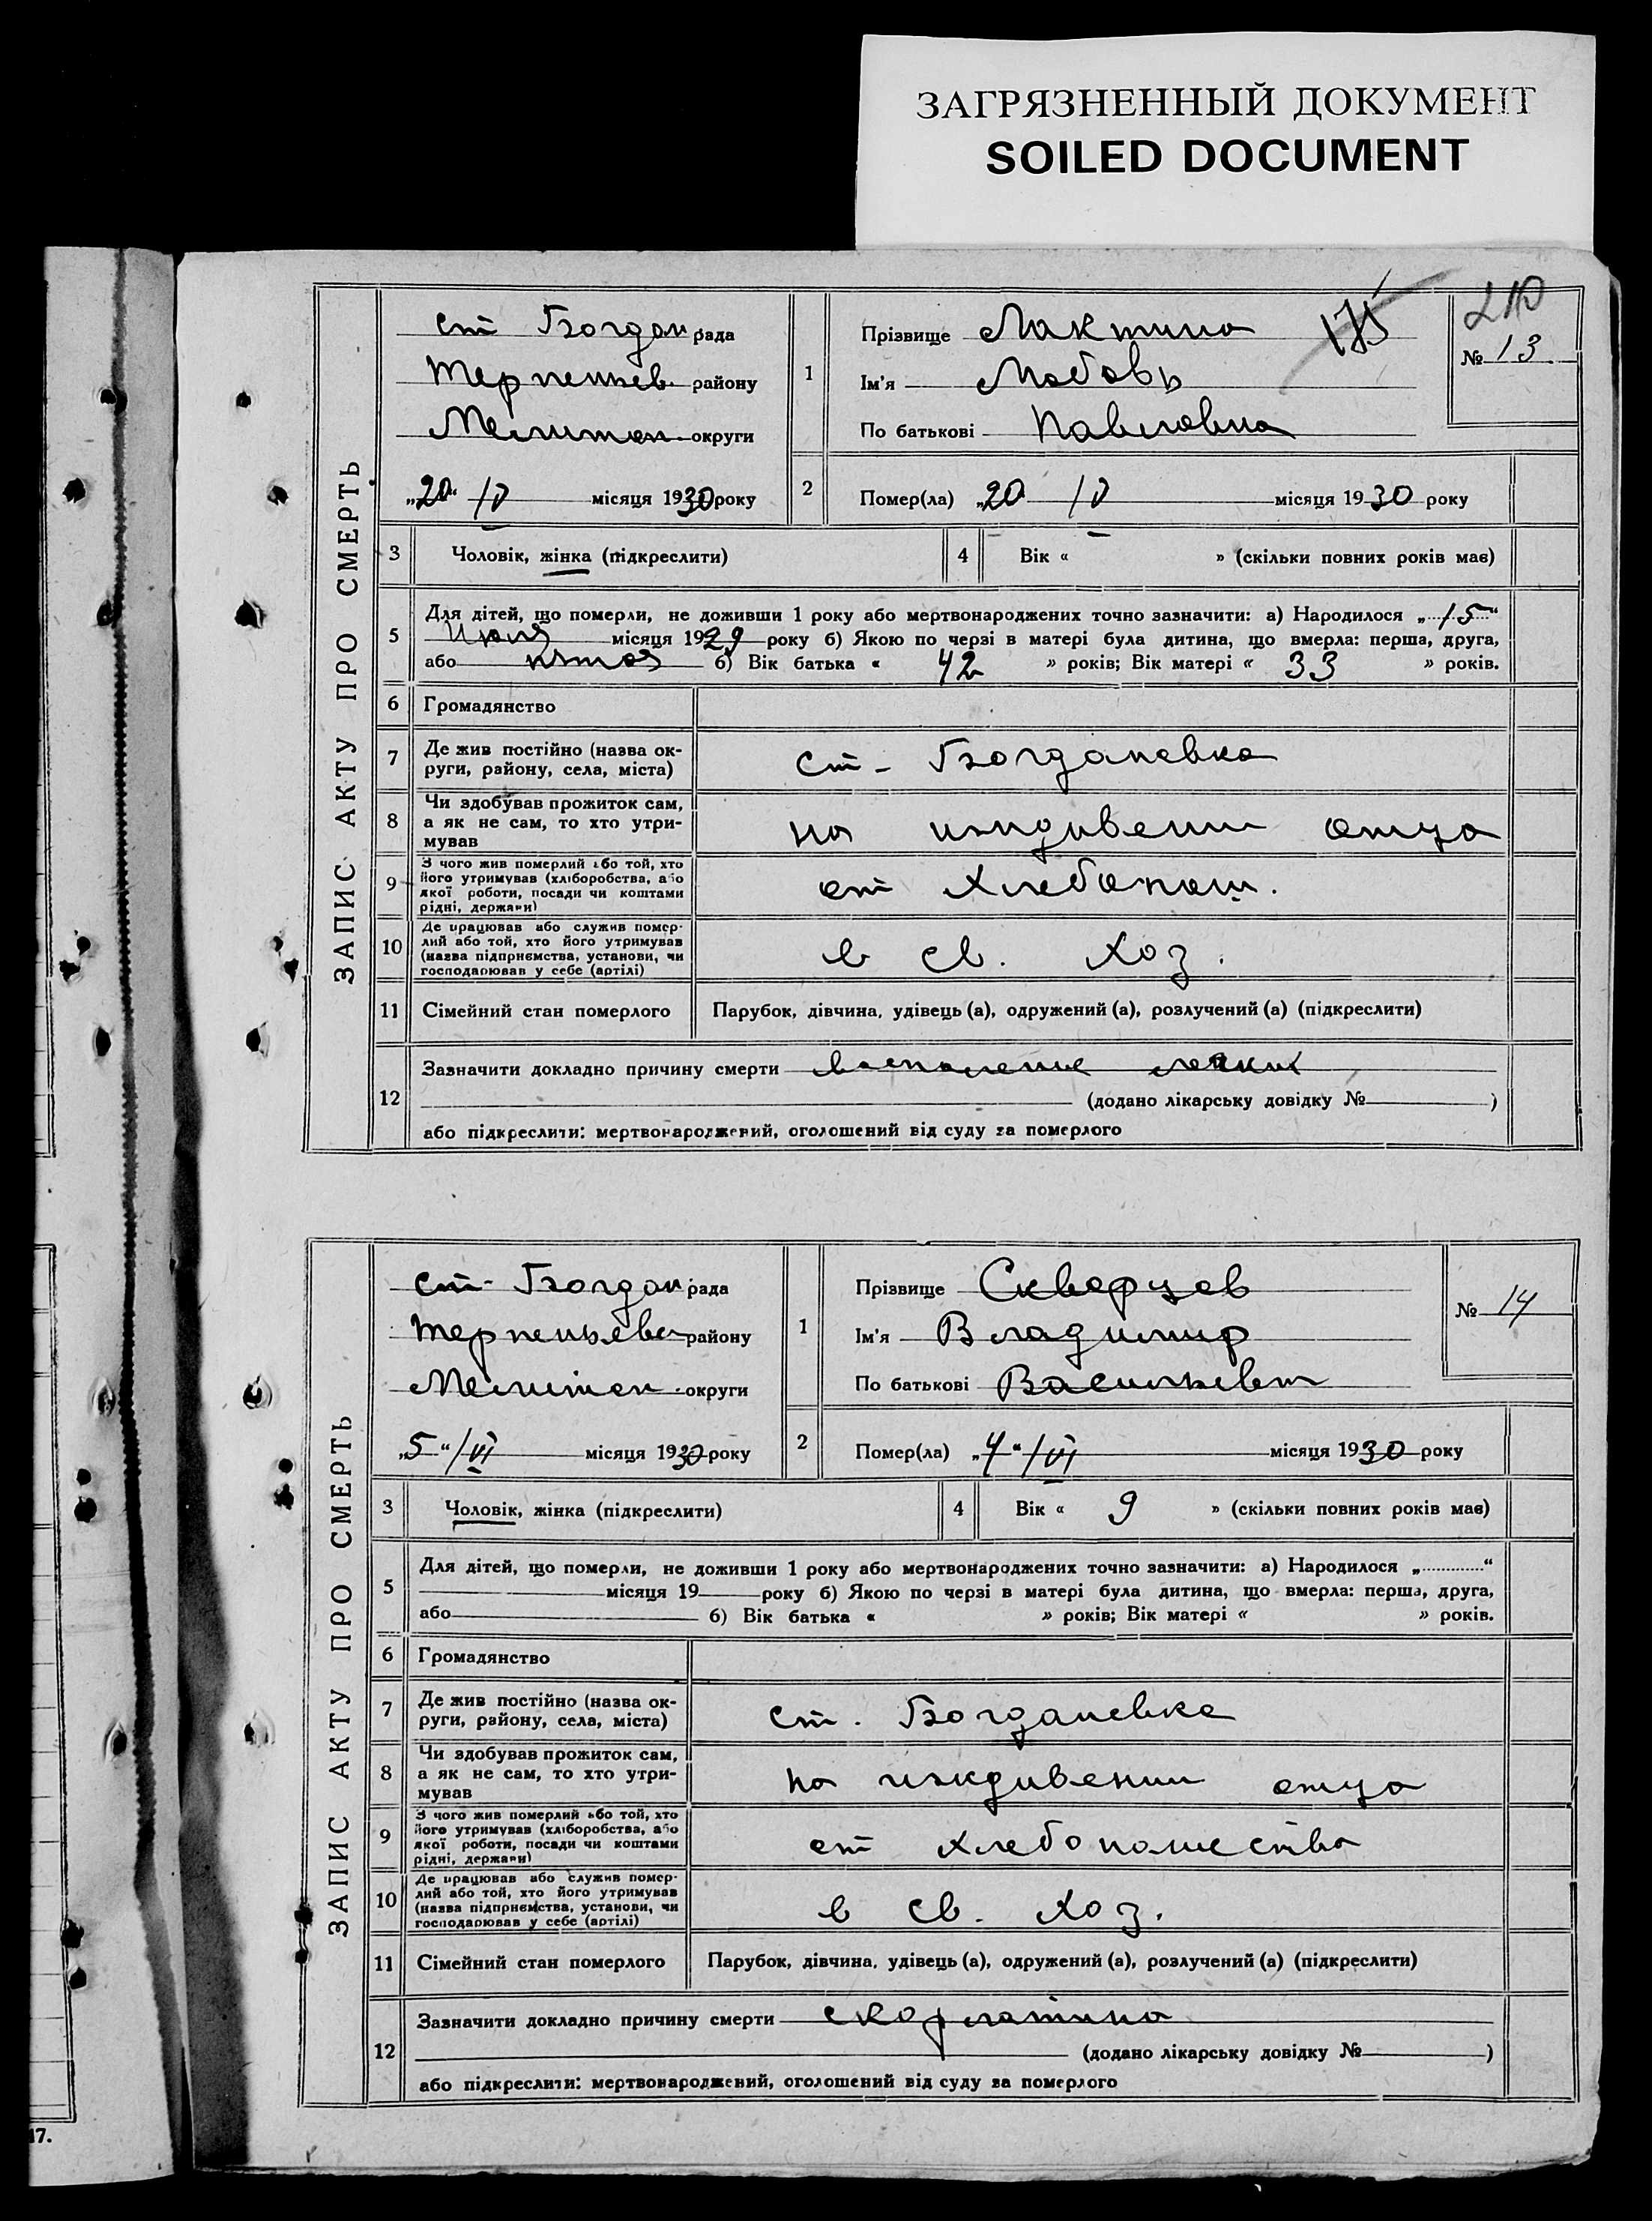 ЗАГРЯЗНЕННЫЙ ДОКУМЕНТ
SOILED DOCUMENT
ЗАПИС АКТУ ПРО СМЕРТЬ
ст Богдан рада
Терпеньев. району
Мелитоп. округи
„20“ IV місяця 1930 року
1
Прізвище Лактина
Ім'я Любовь
По батькові Павловна
175
210
№ 13
2
Помер(ла) „20 IV місяця 1930 року
3 Чоловік, жінка (підкреслити)
4 Вік « » (скільки повних років має)
5
Для дітей, що померли, не доживши 1 року або мертвонароджених точно зазначити: а) Народилося „15“
Июля місяця 1929 року б) Якою по черзі в матері була дитина, що вмерла: перша, друга,
або пятая б) Вік батька « 42 » років; Вік матері « 33 » років.
6 Громадянство
7
Де жив постійно (назва ок-
руги, району, села, міста)
ст- Богдановка
8
Чи здобував прожиток сам,
а як не сам, то хто утри-
мував
на иждивении отца
9
З чого жив померлий або той, хто
його утримував (хліборобства, або
якої роботи, посади чи коштами
рідні, держави)
от хлебопаш.
10
Де працював або служив помер-
лий або той, хто його утримував
(назва підприємства, установи, чи
господарював у себе (артілі)
в св. хоз.
11 Сімейний стан померлого
Парубок, дівчина, удівець (а), одружений (а), розлучений (а) (підкреслити)
12
Зазначити докладно причину смерти воспаление легких
(додано лікарську довідку № )
або підкреслити: мертвонароджений, оголошений від суду за померлого
ЗАПИС АКТУ ПРО СМЕРТЬ
ст- Богдан рада
Терпеньев району
Мелитоп. округи
„5“ VI місяця 1930 року
1
Прізвище Скворцов
Ім'я Владимир
По батькові Васильевич
№ 14
2
Помер(ла) „4“ VI місяця 1930 року
3 Чоловік, жінка (підкреслити)
4 Вік « 9 » (скільки повних років має)
5
Для дітей, що померли, не доживши 1 року або мертвонароджених точно зазначити: а) Народилося „ “
місяця 19 року б) Якою по черзі в матері була дитина, що вмерла: перша, друга,
або б) Вік батька « » років; Вік матері « » років.
6 Громадянство
7
Де жив постійно (назва ок-
руги, району, села, міста)
ст. Богдановка
8
Чи здобував прожиток сам,
а як не сам, то хто утри-
мував
на иждивении отца
9
З чого жив померлий або той, хто
його утримував (хліборобства, або
якої роботи, посади чи коштами
рідні, держави)
от хлебопашества
10
Де працював або служив помер-
лий або той, хто його утримував
(назва підприємства, установи, чи
господарював у себе (артілі)
в св. хоз.
11 Сімейний стан померлого
Парубок, дівчина, удівець (а), одружений (а), розлучений (а) (підкреслити)
12
Зазначити докладно причину смерти скарлатина
(додано лікарську довідку № )
або підкреслити: мертвонароджений, оголошений від суду за померлого
17.